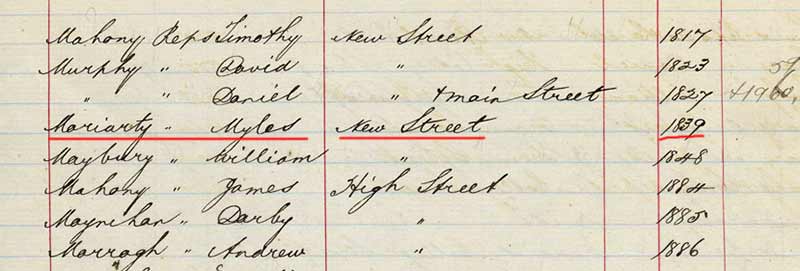 Mahony Reps Timothy New Street 1817
Murphy " David " 1823
" " Daniel " & main Street 1827
Moriarty " Myles New Street 1839
Maybury " William " 1848
Mahony " James High Street 1884
Moynihan " Darby " 1885
Morrogh " Andrew " 1886